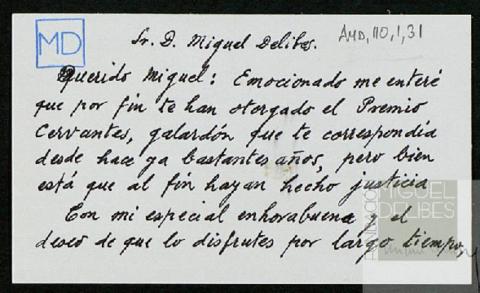 MD
Sr. D. Miguel Delibes.
AMD,110,1,31
Querido Miguel: Emocionado me enteré
que por fin te han otorgado el Premio
Cervantes, galardón que te correspondía
desde hace ya bastantes años, pero bien
está que al fin hayan hecho justicia
Con mi especial enhorabuena y el
deseo de que lo disfrutes por largo tiempo,
FUNDACIÓN
MIGUEL
DELIBES